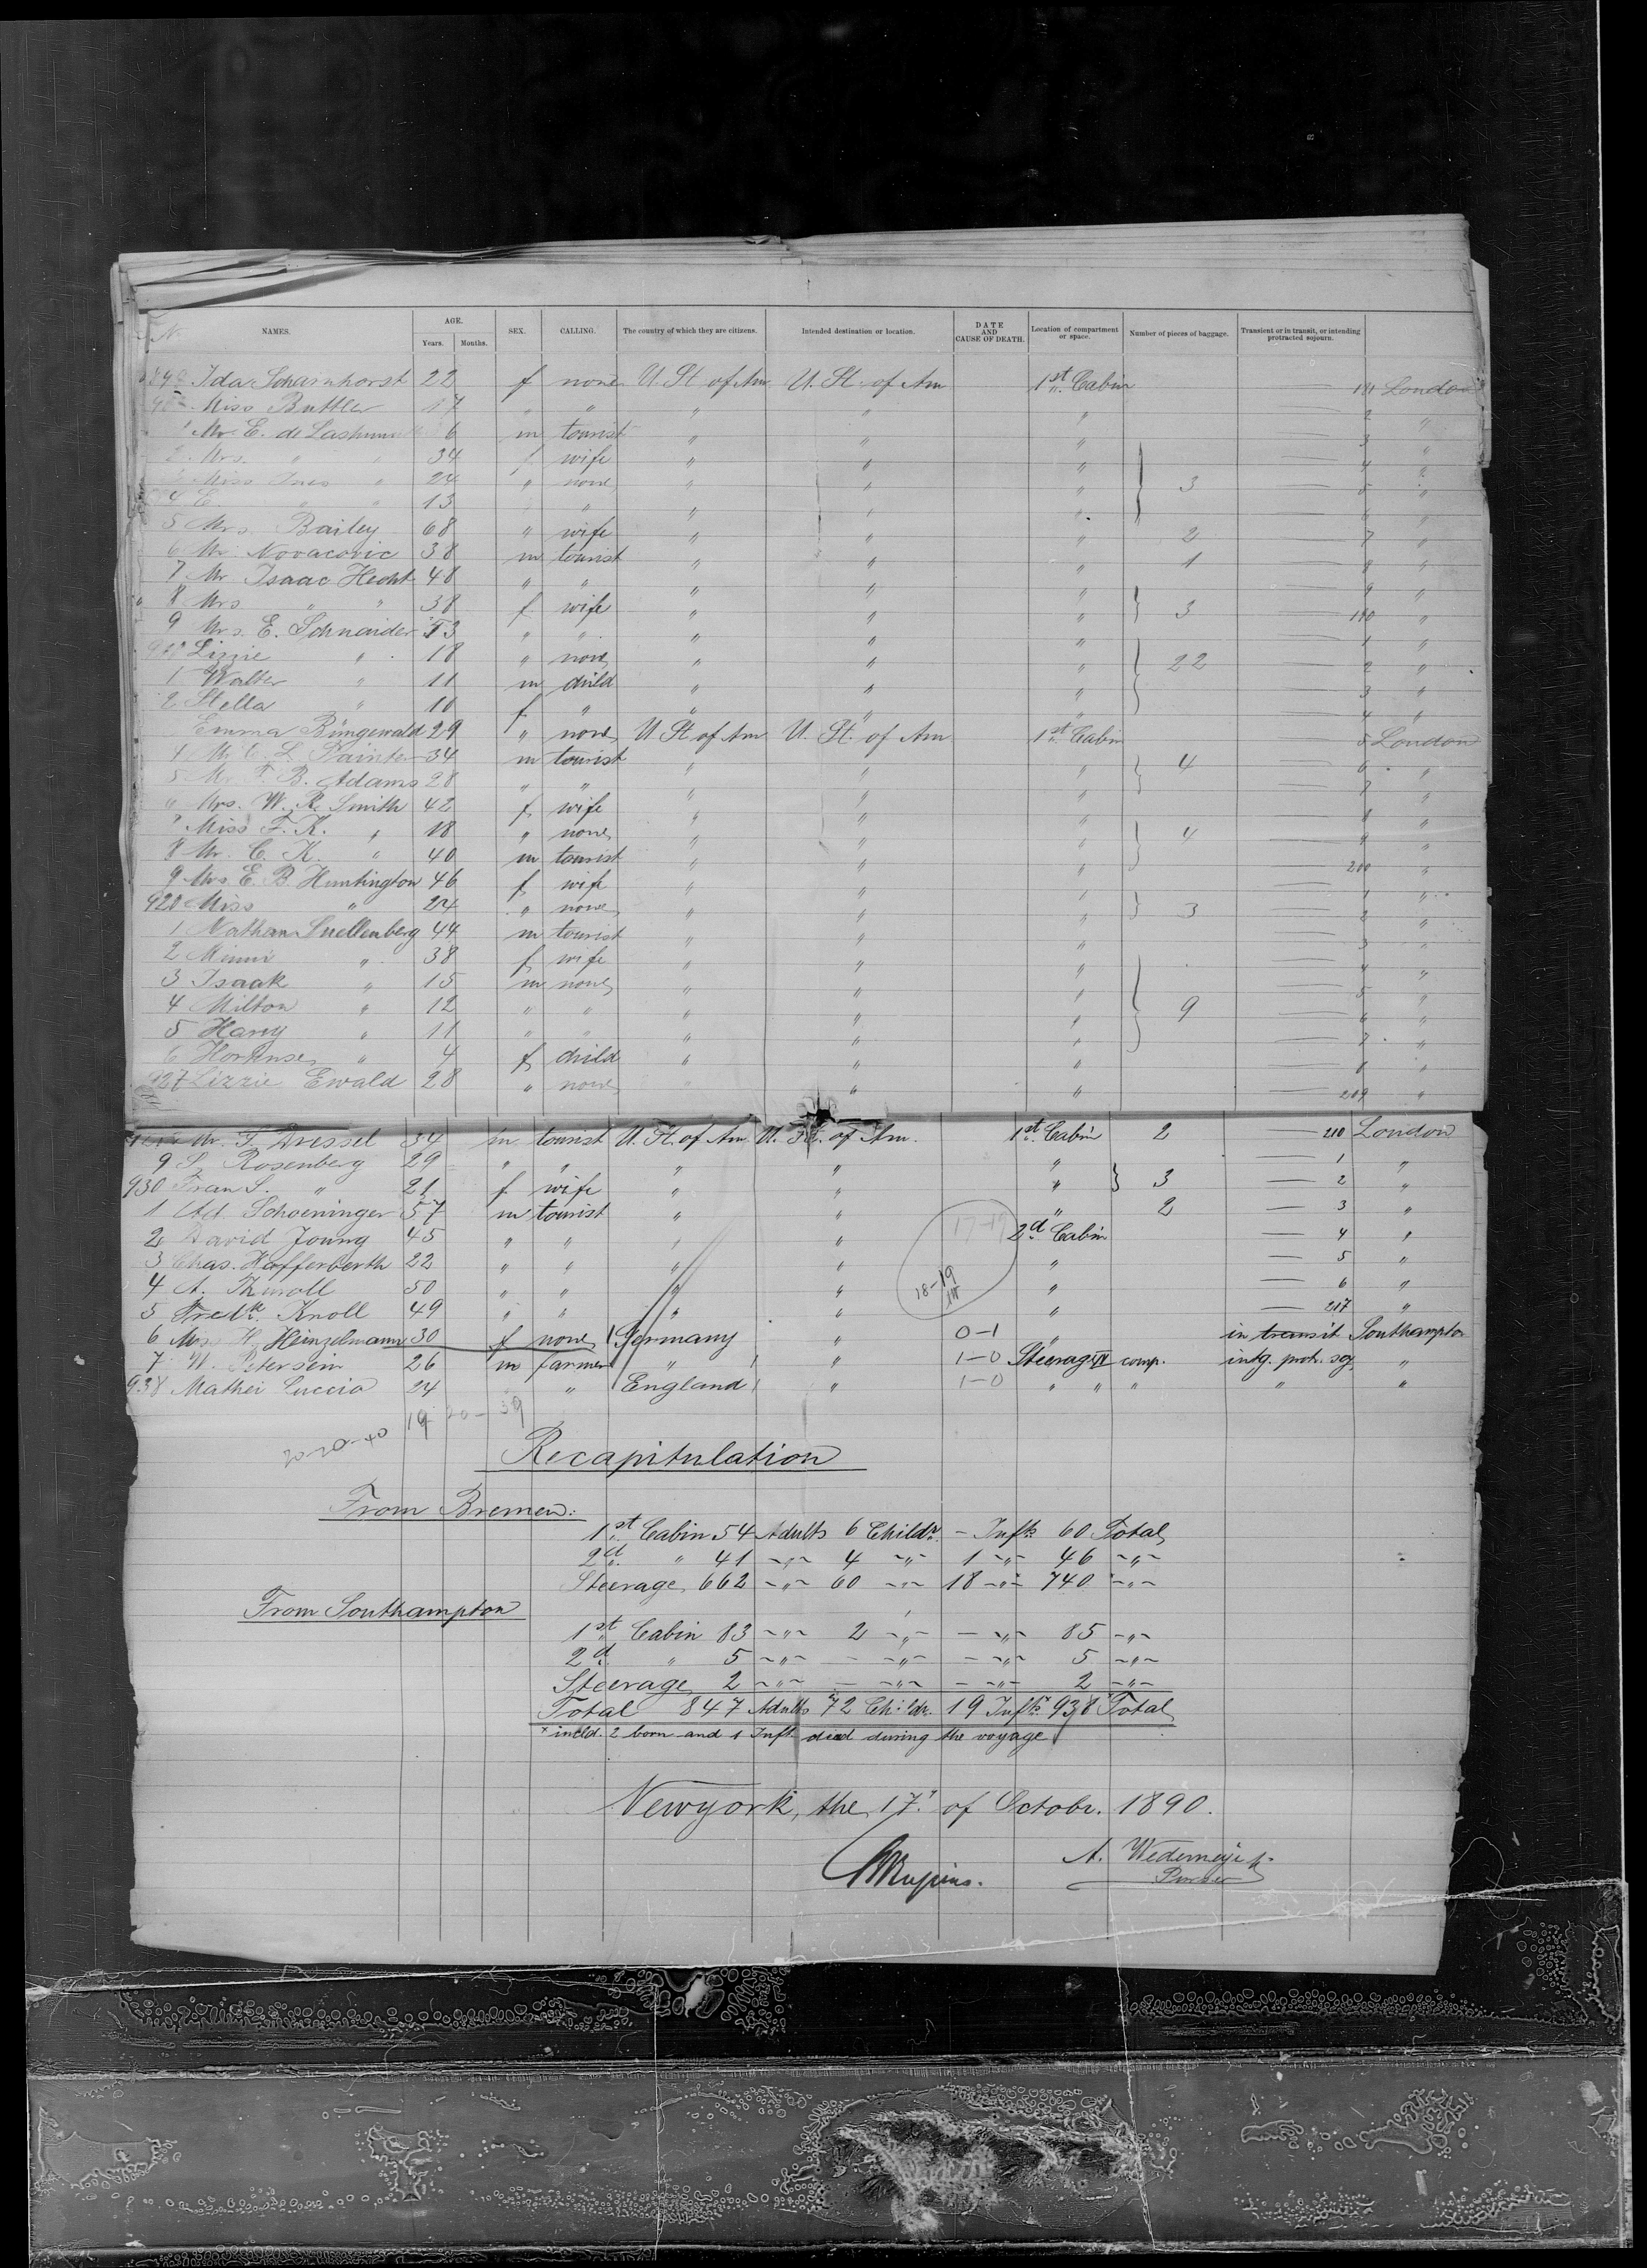 No. NAMES. AGE. Years. Months. SEX. CALLING. The country of which they are citizens. Intended destination or location. DATE AND CAUSE OF DEATH. Location of compartment or space. Number of pieces of baggage. Transient or in transit, or intending protracted sojourn.
Ida Scharnhorst 22 f none U. St. of Am U. St. of Am 1st Cabin — 181 London
Miss Buttler 17 " " " " " — 2 "
1 Mr. E. de 6 m tourist " " " — 3 "
2 Mrs. " " 34 f wife " " " — 4 "
3 Miss Ines " 24 " none " " " 3 — 5 "
4 E " " 13 " " " " — 6 "
5 Mrs Bailey 68 " wife " " " 2 — 7 "
6 Mr Novacovic 38 m tourist " " " 1 — 8 "
7 Mr Isaac Hecht 48 " " " " " — 9 "
8 Mrs " " 38 f wife " " " 3 — 190 "
9 Mrs. E. Schnaider 53 " " " " " — 1 "
910 Lizzie " 18 " none " " " 22 — 2 "
1 Walter " 11 m child " " " — 3 "
2 Stella " 10 f " " " " — 4 "
Emma Büngewald 29 " none U St. of Am U. St. of Am 1st Cabin — 5 London
4 Mr C. L. Painter 34 m tourist " " " 4 — 6 "
5 Mr. F. B. Adams 28 " " " " " — 7 "
6 Mrs. W. R. Smith 42 f wife " " " — 8 "
7 Miss F. K. " 18 " none " " " 4 — 9 "
8 Mr. C. K. " 40 m tourist " " " — 200 "
9 Mrs. E. B. Huntington 46 f wife " " " — 1 "
920 Miss " 24 " none " " " 3 — 2 "
1 Nathan Snellenberg 44 m tourist " " " — 3 "
2 Minni " 38 f wife " " " — 4 "
3 Isaak " 15 m none " " " — 5 "
4 Milton " 12 " " " " " 9 — 6 "
5 Harry " 11 " " " " " — 7 "
6 Hortense " 4 f child " " " — 8 "
927 Lizzie Ewald 28 " none " " " — 209 "
Mr. F. Dressel 34 m tourist U. St. of Am U. St. of Am. 1st Cabin 2 — 210 London
9 S. Rosenberg 29 " " " " " — 1 "
930 Frau S. " 21 f wife " " " 3 — 2 "
1 Ad. Schoeninger 57 m tourist " " " 2 — 3 "
2 David Joung 45 " " " " 17-19 2d Cabin — 4 "
3 Chas. Hafferberth 22 " " " " " — 5 "
4 A. Knoll 50 " " " " 18-19 " — 6 "
5 Fredk. Knoll 49 " " " " " — 217 "
6 Mrs H. Heinzelmann 30 f none Germany " 0-1 " in transit Southampton
7 W. Petersein 26 m farmer " " 1-0 Steerage IV comp. intg. protr. sg. "
938 Mathei Luccia 24 " " England " 1-0 " " " " "
19 20- 39
20-20-40
Recapitulation
From Bremen:
1st Cabin 54 Adults 6 Childr. - Infts 60 Total
2d " 41 -"- 4 -"- 1 -"- 46 -"-
Steerage 662 -"- 60 -"- 18 -"- 740 -"-
From Southampton
1st Cabin 83 -"- 2 -"- — -"- 85 -"-
2d " 5 -"- — -"- — -"- 5 -"-
Steerage 2 -"- — -"- — -"- 2 -"-
Total 847 Adults 72 Childr. 19 Infts 938 Total
x incld. 2 born and 1 Inft. died during the voyage
Newyork, the 17. of Octobr. 1890.
A. Wedemeyer
Purser